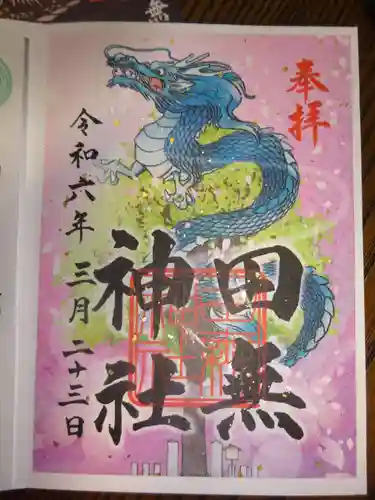 奉拝
田無
神社
令和六年三月二十三日
無